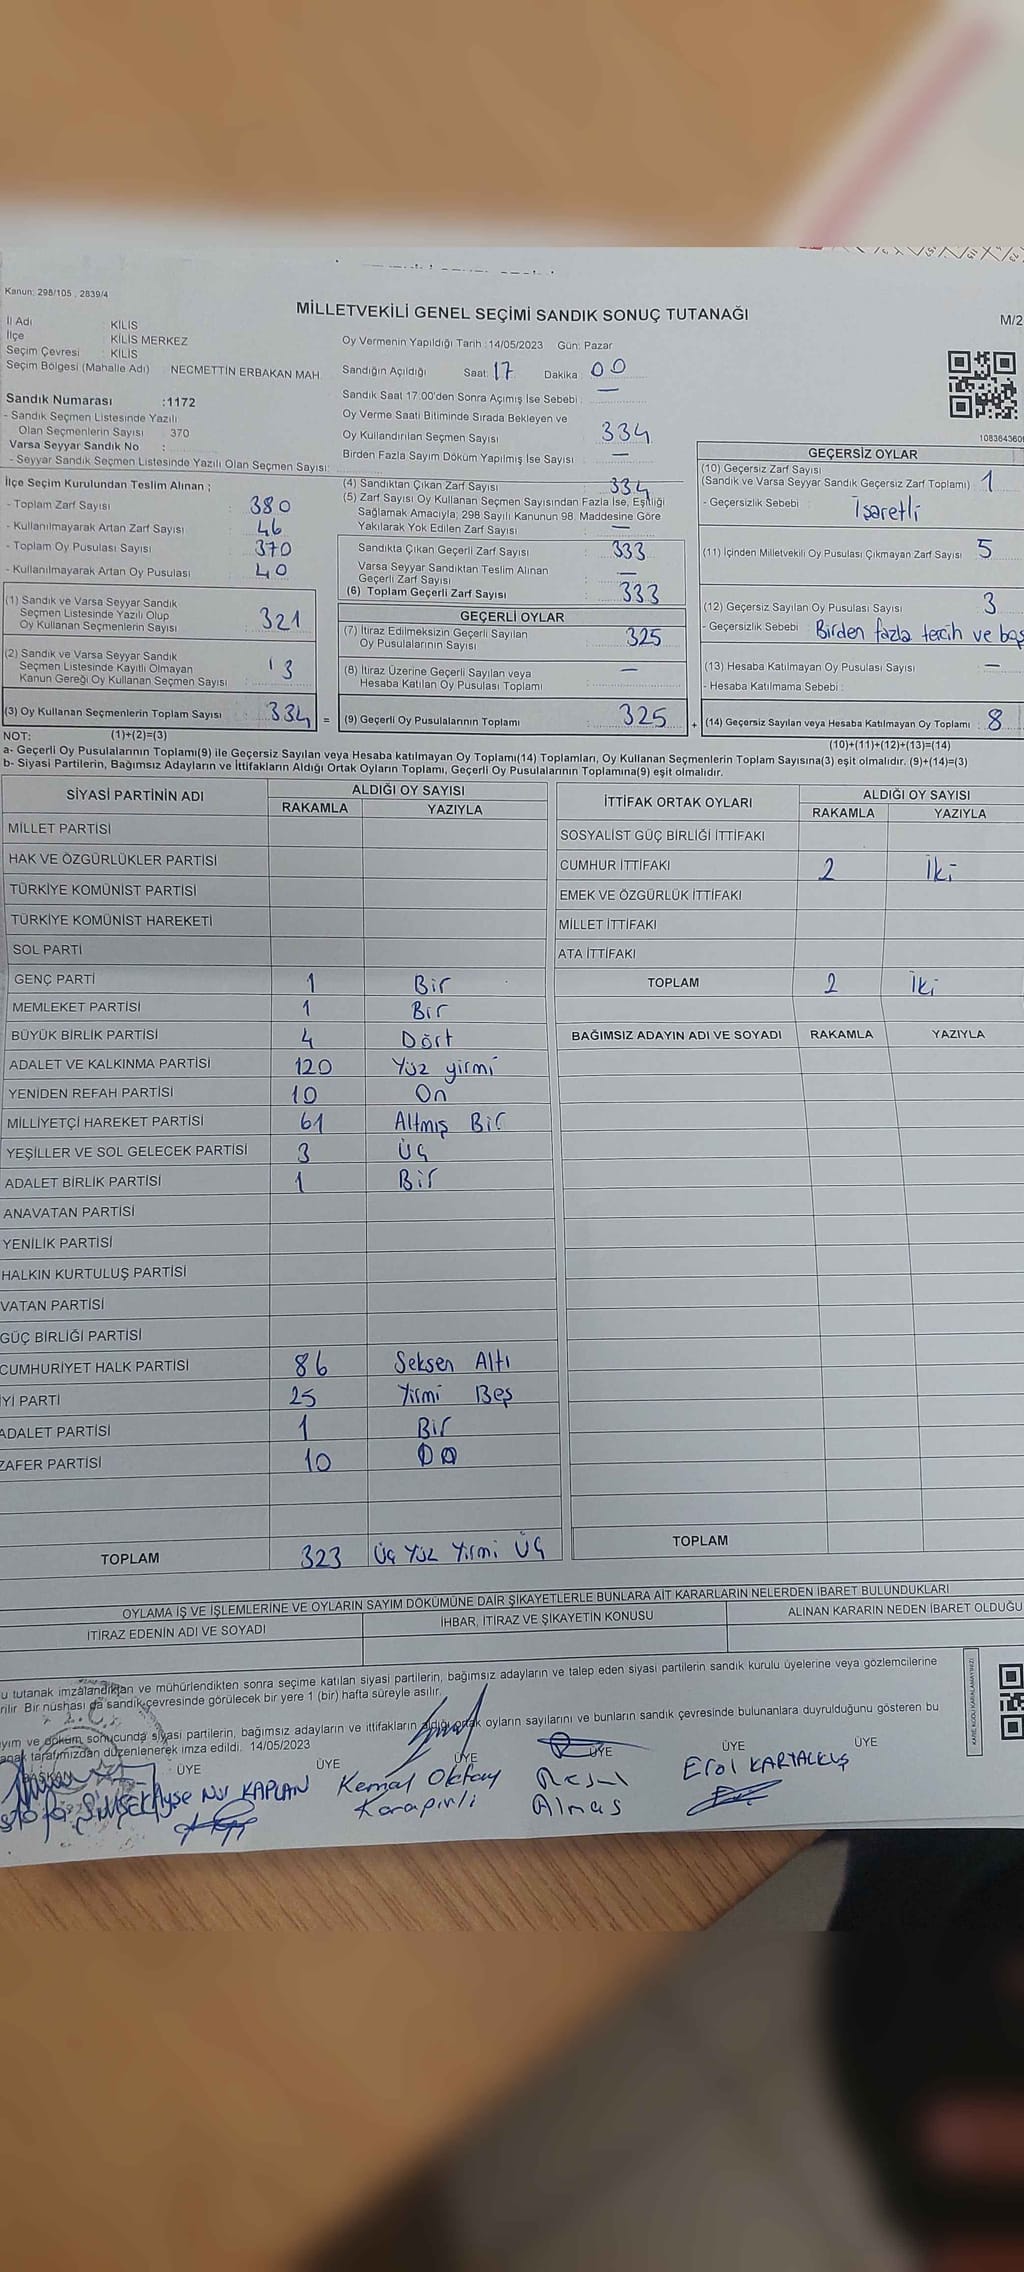 Kanun: 298/105 , 2839/4
MİLLETVEKİLİ GENEL SEÇİMİ SANDIK SONUÇ TUTANAĞI
M/2
İl Adı : KİLİS
İlçe : KİLİS MERKEZ
Seçim Çevresi : KİLİS
Seçim Bölgesi (Mahalle Adı) NECMETTİN ERBAKAN MAH.
Oy Vermenin Yapıldığı Tarih :14/05/2023 Gün: Pazar
Sandığın Açıldığı Saat: 17 Dakika : 00
Sandık Saat 17.00'den Sonra Açımış İse Sebebi : —
Oy Verme Saati Bitiminde Sırada Bekleyen ve
Oy Kullandırılan Seçmen Sayısı : 334
Birden Fazla Sayım Döküm Yapılmış İse Sayısı : —
Sandık Numarası :1172
- Sandık Seçmen Listesinde Yazılı
Olan Seçmenlerin Sayısı : 370
Varsa Seyyar Sandık No :
- Seyyar Sandık Seçmen Listesinde Yazılı Olan Seçmen Sayısı:
İlçe Seçim Kurulundan Teslim Alınan ;
- Toplam Zarf Sayısı : 380
- Kullanılmayarak Artan Zarf Sayısı : 46
- Toplam Oy Pusulası Sayısı : 370
- Kullanılmayarak Artan Oy Pusulası : 40
(1) Sandık ve Varsa Seyyar Sandık
Seçmen Listesinde Yazılı Olup
Oy Kullanan Seçmenlerin Sayısı : 321
(2) Sandık ve Varsa Seyyar Sandık
Seçmen Listesinde Kayıtlı Olmayan
Kanun Gereği Oy Kullanan Seçmen Sayısı : 13
(3) Oy Kullanan Seçmenlerin Toplam Sayısı : 334 =
(4) Sandıktan Çıkan Zarf Sayısı : 334
(5) Zarf Sayısı Oy Kullanan Seçmen Sayısından Fazla İse, Eşitliği
Sağlamak Amacıyla; 298 Sayılı Kanunun 98. Maddesine Göre
Yakılarak Yok Edilen Zarf Sayısı : —
Sandıkta Çıkan Geçerli Zarf Sayısı : 333
Varsa Seyyar Sandıktan Teslim Alınan
Geçerli Zarf Sayısı : —
(6) Toplam Geçerli Zarf Sayısı : 333
GEÇERLİ OYLAR
(7) İtiraz Edilmeksizin Geçerli Sayılan
Oy Pusulalarının Sayısı : 325
(8) İtiraz Üzerine Geçerli Sayılan veya
Hesaba Katılan Oy Pusulası Toplamı : —
(9) Geçerli Oy Pusulalarının Toplamı : 325 +
GEÇERSİZ OYLAR
(10) Geçersiz Zarf Sayısı
(Sandık ve Varsa Seyyar Sandık Geçersiz Zarf Toplamı) : 1
- Geçersizlik Sebebi : İşaretli
(11) İçinden Milletvekili Oy Pusulası Çıkmayan Zarf Sayısı : 5
(12) Geçersiz Sayılan Oy Pusulası Sayısı : 3
- Geçersizlik Sebebi : Birden fazla tercih ve boş
(13) Hesaba Katılmayan Oy Pusulası Sayısı : —
- Hesaba Katılmama Sebebi :
(14) Geçersiz Sayılan veya Hesaba Katılmayan Oy Toplamı : 8
NOT: (1)+(2)=(3)
(10)+(11)+(12)+(13)=(14)
a- Geçerli Oy Pusulalarının Toplamı(9) ile Geçersiz Sayılan veya Hesaba katılmayan Oy Toplamı(14) Toplamları, Oy Kullanan Seçmenlerin Toplam Sayısına(3) eşit olmalıdır. (9)+(14)=(3)
b- Siyasi Partilerin, Bağımsız Adayların ve İttifakların Aldığı Ortak Oyların Toplamı, Geçerli Oy Pusulalarının Toplamına(9) eşit olmalıdır.
SİYASİ PARTİNİN ADI ALDIĞI OY SAYISI
RAKAMLA YAZIYLA
MİLLET PARTİSİ
HAK VE ÖZGÜRLÜKLER PARTİSİ
TÜRKİYE KOMÜNİST PARTİSİ
TÜRKİYE KOMÜNİST HAREKETİ
SOL PARTİ
GENÇ PARTİ 1 Bir
MEMLEKET PARTİSİ 1 Bir
BÜYÜK BİRLİK PARTİSİ 4 Dört
ADALET VE KALKINMA PARTİSİ 120 Yüz yirmi
YENİDEN REFAH PARTİSİ 10 On
MİLLİYETÇİ HAREKET PARTİSİ 61 Altmış Bir
YEŞİLLER VE SOL GELECEK PARTİSİ 3 Üç
ADALET BİRLİK PARTİSİ 1 Bir
ANAVATAN PARTİSİ
YENİLİK PARTİSİ
HALKIN KURTULUŞ PARTİSİ
VATAN PARTİSİ
GÜÇ BİRLİĞİ PARTİSİ
CUMHURİYET HALK PARTİSİ 86 Seksen Altı
İYİ PARTİ 25 Yirmi Beş
ADALET PARTİSİ 1 Bir
ZAFER PARTİSİ 10
TOPLAM 323 Üç Yüz Yirmi Üç
İTTİFAK ORTAK OYLARI ALDIĞI OY SAYISI
RAKAMLA YAZIYLA
SOSYALİST GÜÇ BİRLİĞİ İTTİFAKI
CUMHUR İTTİFAKI 2 İki
EMEK VE ÖZGÜRLÜK İTTİFAKI
MİLLET İTTİFAKI
ATA İTTİFAKI
TOPLAM 2 İki
BAĞIMSIZ ADAYIN ADI VE SOYADI RAKAMLA YAZIYLA
TOPLAM
OYLAMA İŞ VE İŞLEMLERİNE VE OYLARIN SAYIM DÖKÜMÜNE DAİR ŞİKAYETLERLE BUNLARA AİT KARARLARIN NELERDEN İBARET BULUNDUKLARI
İTİRAZ EDENİN ADI VE SOYADI İHBAR, İTİRAZ VE ŞİKAYETİN KONUSU ALINAN KARARIN NEDEN İBARET OLDUĞU
u tutanak imzalandıktan ve mühürlendikten sonra seçime katılan siyasi partilerin, bağımsız adayların ve talep eden siyasi partilerin sandık kurulu üyelerine veya gözlemcilerine
rilir. Bir nüshası da sandık çevresinde görülecek bir yere 1 (bir) hafta süreyle asılır.
ayım ve döküm sonucunda siyasi partilerin, bağımsız adayların ve ittifakların aldığı ortak oyların sayılarını ve bunların sandık çevresinde bulunanlara duyrulduğunu gösteren bu
anak tarafımızdan düzenlenerek imza edildi. 14/05/2023
BAŞKAN ÜYE ÜYE ÜYE ÜYE ÜYE ÜYE
Ayşe Nur KAPLAN
Kemal Oktay
Karapirli
Resul
Almas
Erol KARTALKUŞ